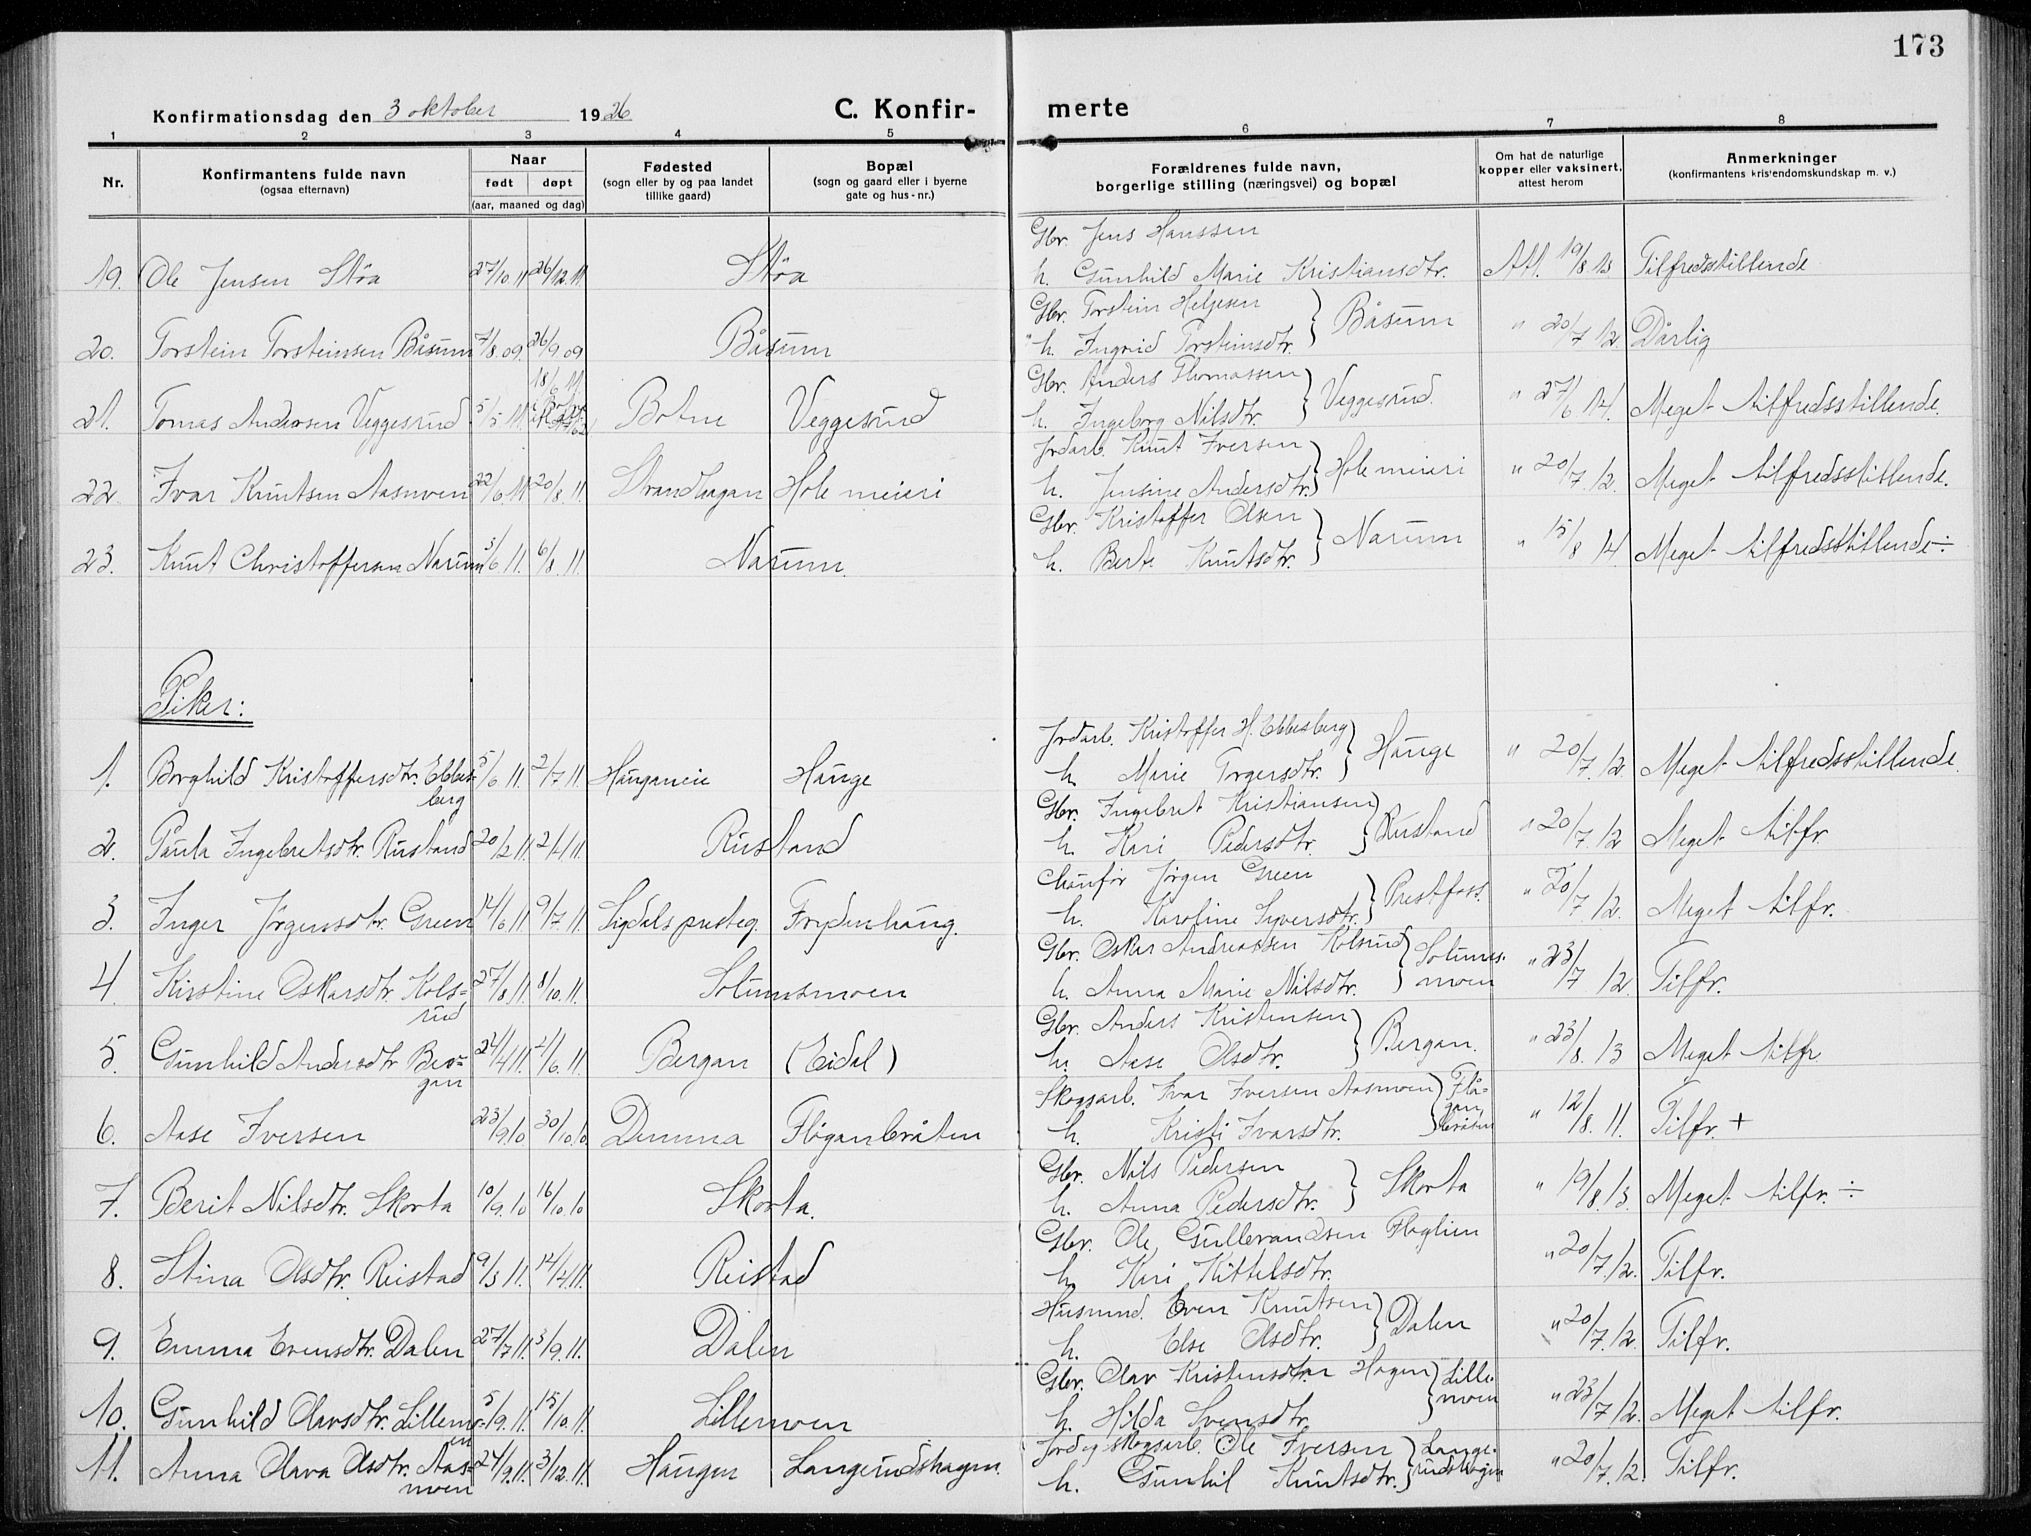 173
Konfirmationsdag den 3 oktober 1926 C. Konfir- merte
1 2 3 4 5 6 7 8
Nr. Konfirmantens fulde navn (ogsaa efternavn) Naar født døpt (aar, maaned og dag) Fødested (sogn eller by og paa landet tillike gaard) Bopæl (sogn og gaard eller i byerne gate og hus-nr.) Forældrenes fulde navn, borgerlige stilling (næringsvei) og bopæl Om hat de naturlige kopper eller vaksinert, attest herom Anmerkninger (konfirmantens kristendomskundskap m. v.)
Gbr. Jens Hanssen
19. Ole Jensen Støa 27/10.11 26/12.11 Støa h. Gunhild Marie Kristiansdtr. Att. 19/8 13 Tilfredsstillende
Gbr. Torstein Helgesen
20. Torstein Torsteinsen Båsum 7/8.09. 26/9.09 Båsum h. Ingrid Torsteinsdtr. } Båsum " 20/7 12. Dårlig
Gbr. Anders Thomassen
21. Tomas Andersen Veggesrud 5/5 11. 18/6 11 Botne Veggesrud h. Ingeborg Nilsdtr. } Veggesrud. " 27/6 14. Meget tilfredsstillende.
Jordarb. Knut Iversen
22. Ivar Knutsen Aasmoen 22/6.11 20/8.11. Strandhagan Hole meieri h. Jensine Andersdtr. } Hole meieri " 20/7.12. Meget tilfredsstillende.
Gbr. Kristoffer Olsen
23. Knut Christoffersen Narum 3/6.11. 6/8.11. Narum. h. Berte Knutsdtr. } Narum " 15/8 14. Meget tilfredsstillende ÷
Piker:
Jordarb. Kristoffer H. Ebbesberg
1. Borghild Kristoffersdtr. Ebbes- berg 5/6.11. 2/7.11. Hauganeie Hauge h. Marie Torgersdtr. } Hauge " 20/7.12 Meget tilfredsstillende.
Gbr. Ingebret Kristiansen
2. Paula Ingebretsdtr. Rustand 20/2.11. 2/4.11. Rustand h. Kari Pedersdtr. } Rustand " 20/7.12 Meget tilfr.
Chauffør Jørgen Green
3. Inger Jørgensdtr. Green 14/6.11. 9/7.11. Sigdals presteg. Frydenhaug. h. Karoline Syversdtr. } Prestfoss. " 20/7 12. Meget tilfr.
Gbr. Oskar Andreassen Kolsrud
4. Kirstine Oskarsdtr. Kols- rud 27/8.11. 8/10.11. Solumsmoen h. Anna Marie Nilsdtr. } Solums- moen " 23/7 12. Tilfr.
Gbr. Anders Kristensen
5. Gunhild Andersdtr Ber- gan 24/4.11. 4/6.11. Bergan (Eidal) h. Aase Olsdtr. } Bergan. " 23/8.13 Meget tilfr.
Skogsarb. Ivar Iversen Aasmoen
6. Aase Iversen 23/9.10 30/10.10 Demma Flåganbråten h. Kristi Ivarsdtr. } Flå- gan bråten " 12/8.11. Tilfr. +
Gbr. Nils Pedersen
7. Berit Nilsdtr. Skorta 10/9.10 16/10.10 Skorta. h. Anna Pedersdtr. } Skorta " 19/8.13. Meget tilfr. ÷
Gbr. Ole Gullerandsen Flaglien
8. Stina Olsdtr. Reistad 9/3 11. 14/4.11. Reistad h. Kari Kittelsdtr. " 20/7.12. Tilfr.
Husmand. Even Knutsen
9. Emma Evensdtr. Dalen 27/7.11. 3/9.11. Dalen h. Else Olsdtr. } Dalen " 20/7.12. Tilfr.
Gbr. Olav Kristensen Hagen
10. Gunhild Olavsdtr. Lillemo- en 5/9.11. 15/10.11. Lillemoen h. Hilda Svensdtr. } Lille- moen " 23/7.12. Meget tilfr.
Jord og skogsarb. Ole Iversen
11. Anna Olava Olsdtr. Aas- moen 24/9.11. 3/12.11. Haugen Langerudshagen. h. Gunhil Knutsdtr. } Lange- rudshagen " 20/7.12. Tilfr.